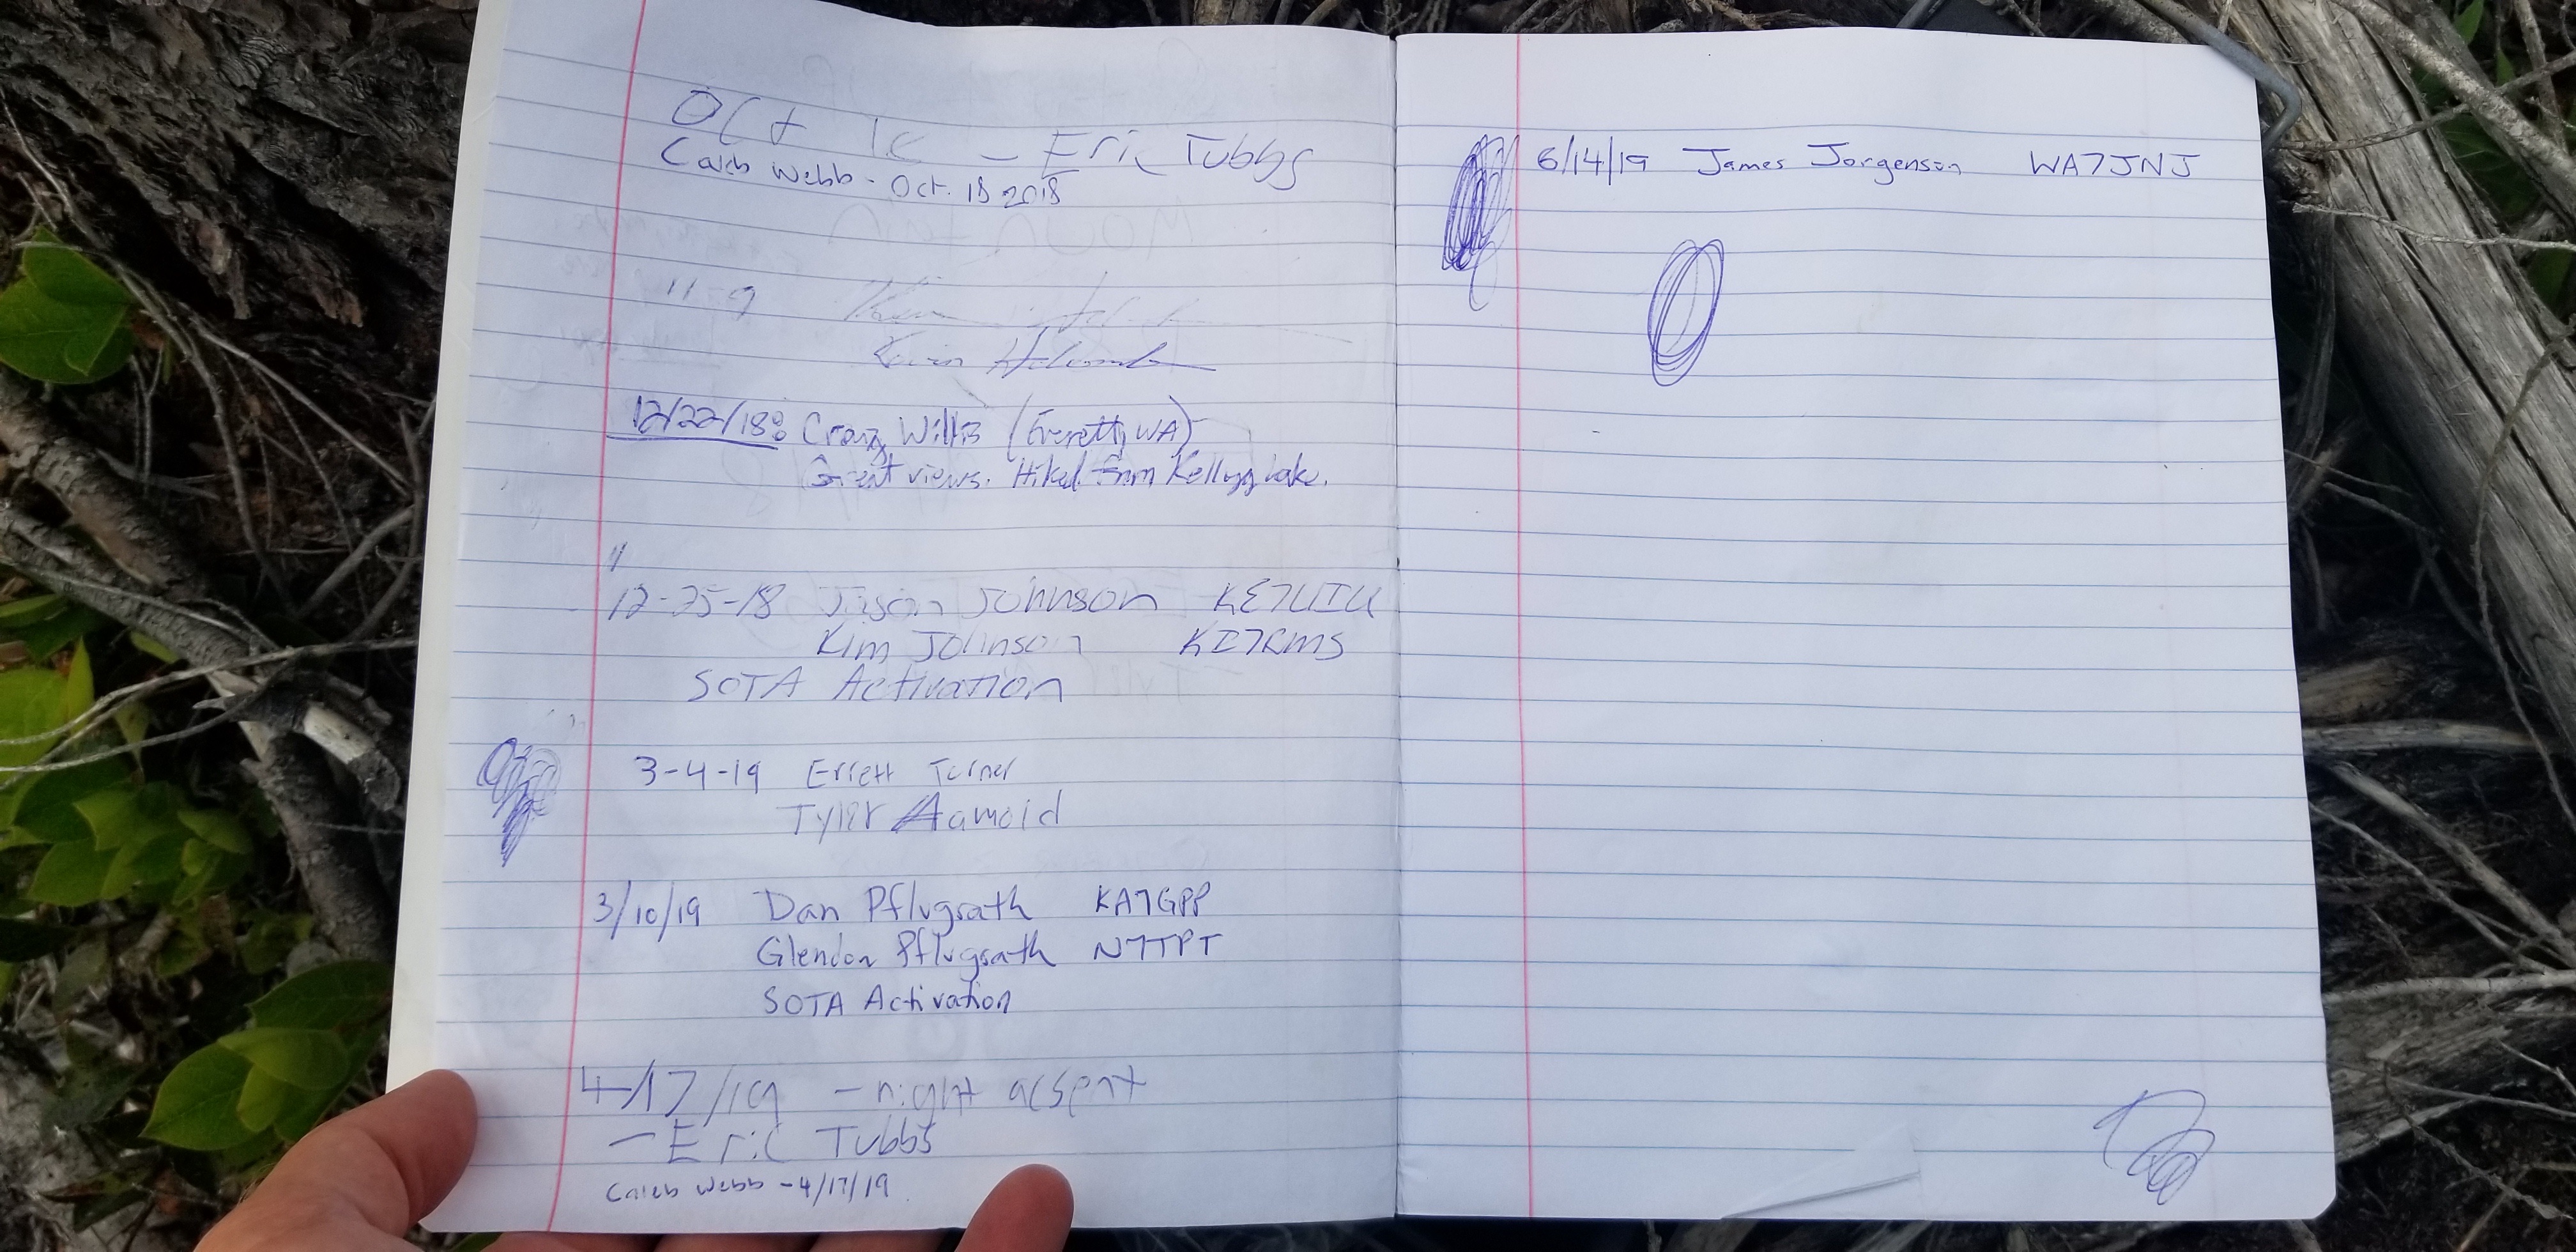 Oct 18 - Eric Tubbs
Caleb Webb - Oct. 18 2018
11-9
Kevin Holcomb
12/22/18: Craig Willis (Everett, WA)
Great views. Hiked from Kellogg Lake.
12-25-18 Jason Johnson KE7UIU
Kim Johnson KI7RMS
SOTA Activation
3-4-19 Errett Turner
Tyler Aamold
3/10/19 Dan Pflugrath KA7GPP
Glendon Pflugrath N7TPT
SOTA Activation
4/17/19 - night acsent
- Eric Tubbs
Caleb Webb - 4/17/19
6/14/19 James Jorgenson WA7JNJ